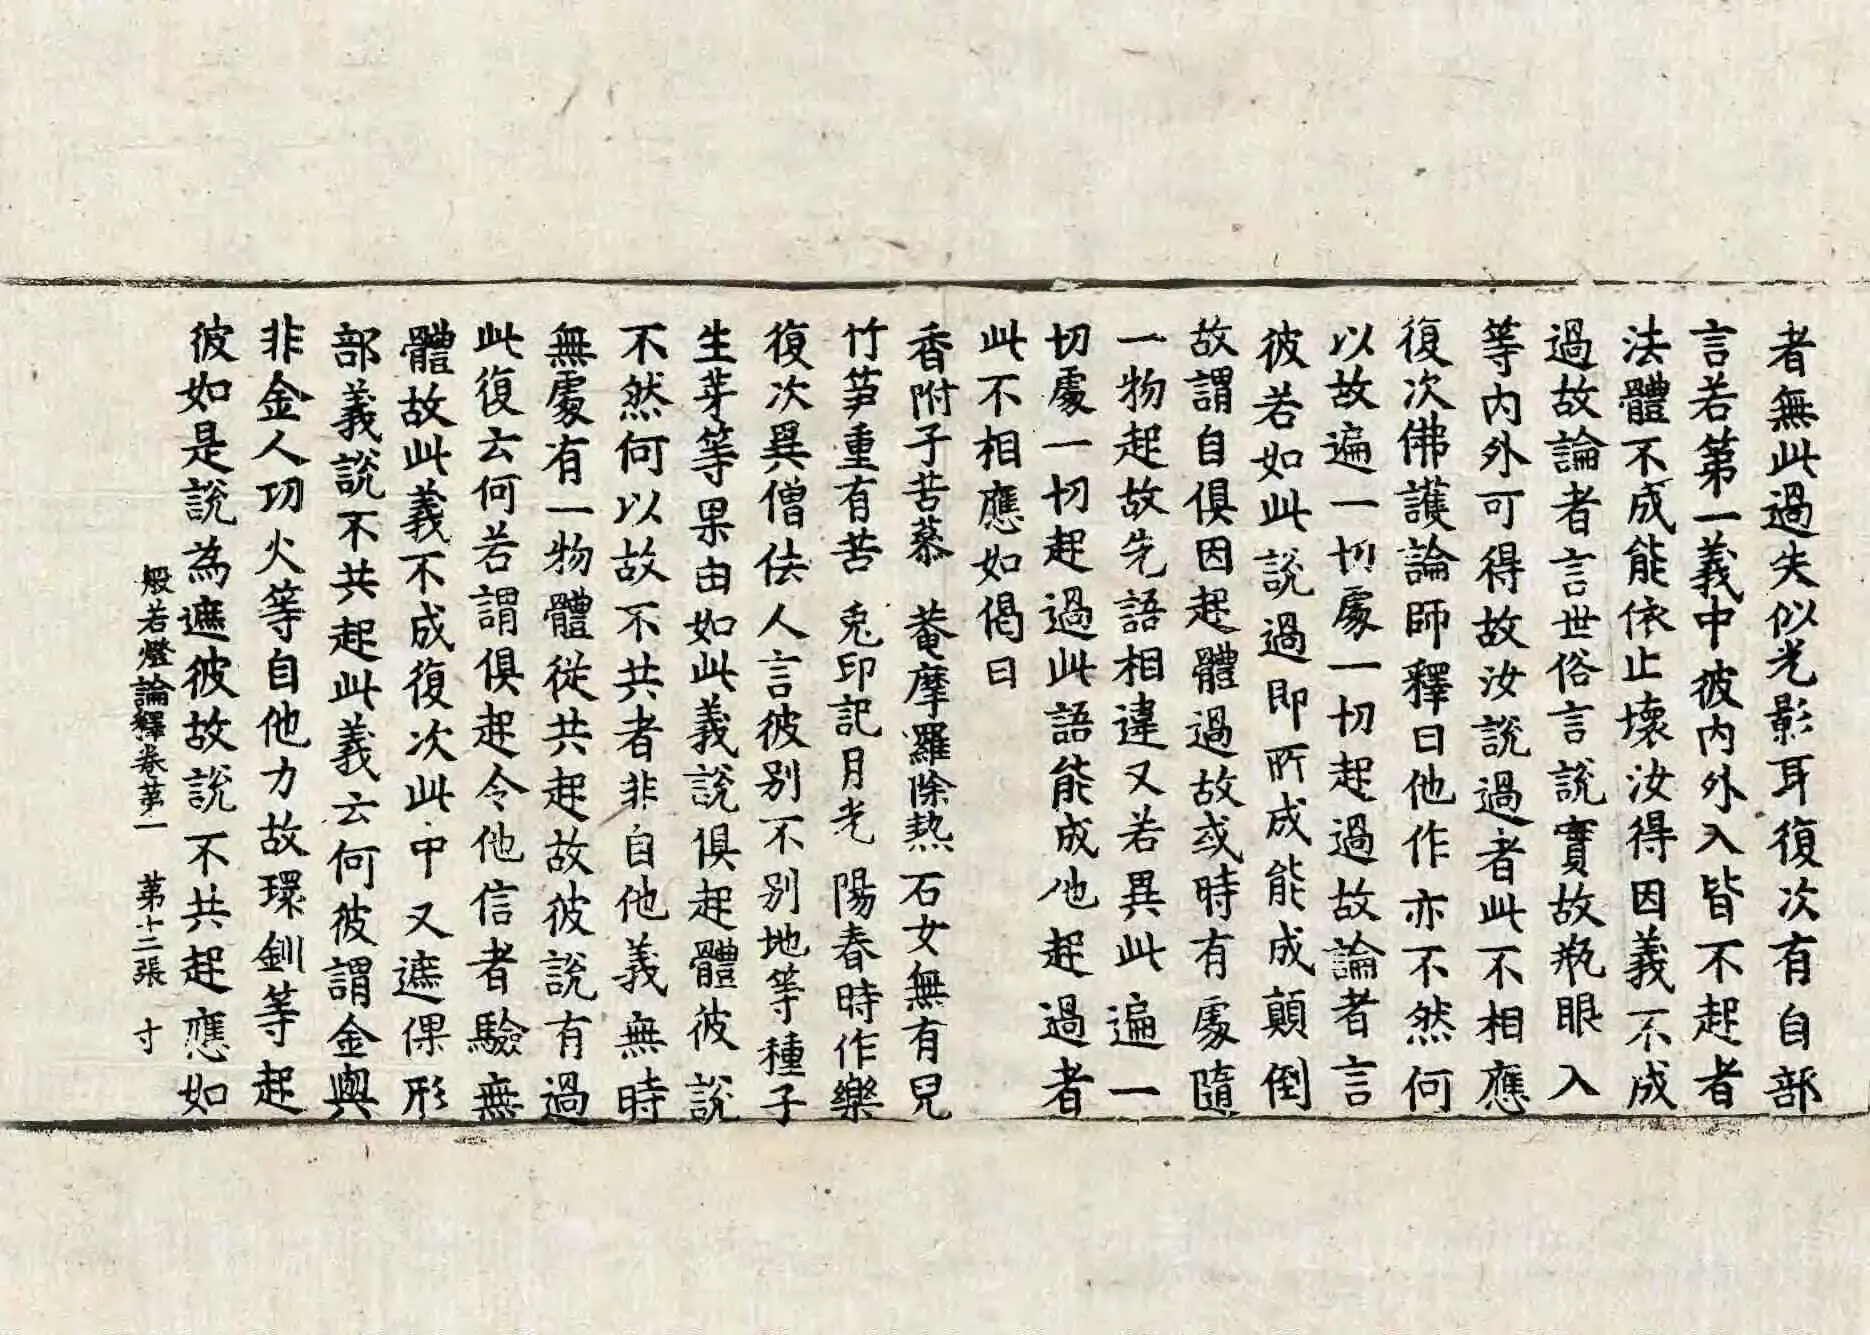 者無此過失似光影耳復次有自部
言若第一義中彼內外入皆不起者
法體不成能依止壞汝得因義不成
過故論者言世俗言說實故瓶眼入
等內外可得故汝說過者此不相應
復次佛護論師釋曰他作亦不然何
以故遍一切處一切起過故論者言
彼若如此說過即所成能成顛倒
故謂自俱因起體過故或時有處隨
一物起故先語相違又若異此遍一
切處一切起過此語能成他起過者
此不相應如偈曰
香附子苦蔘 菴摩羅除熱 石女無有兒
竹笋重有苦 兎印記月光 陽春時作樂
復次異僧佉人言彼別不別地等種子
生芽等果由如此義說俱起體彼說
不然何以故不共者非自他義無時
無處有一物體從共起故彼說有過
此復云何若謂俱起令他信者驗無
體故此義不成復次此中又遮倮形
部義說不共起此義云何彼謂金與
非金人功火等自他力故環釧等起
彼如是說為遮彼故說不共起應如
般若燈論釋卷第一 第十二張 寸